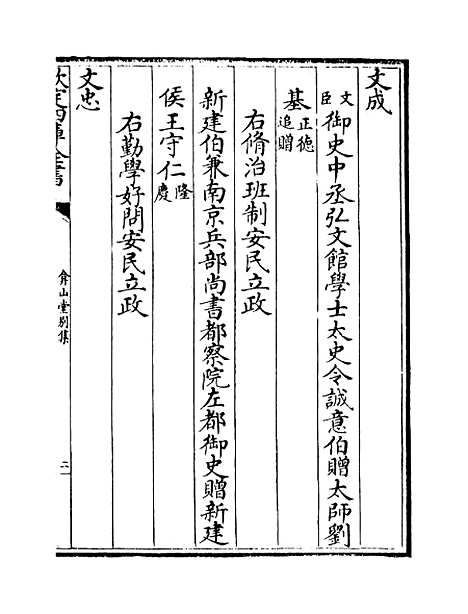 文成
文臣御史中丞弘文館學士太史令誠意伯贈太師劉
基正德追贈
右脩治班制安民立政
新建伯兼南京兵部尚書都察院左都御史贈新建
侯王守仁隆慶
右勤學好問安民立政
文忠
欽定四庫全書
弇山堂別集